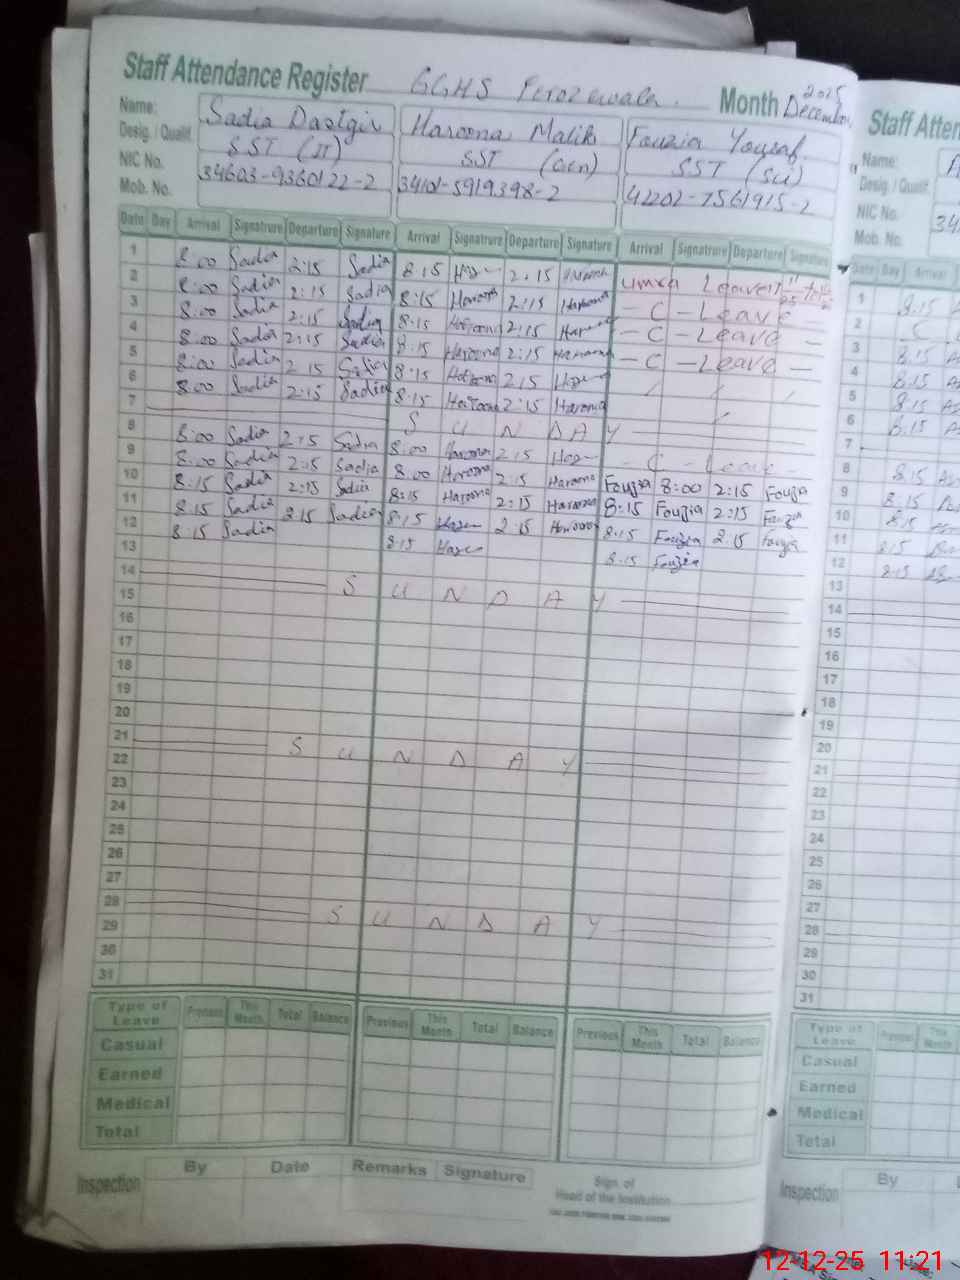 Staff Attendance Register GGHS Ferozewala. Month December 2025
Name: Sadia Dastgir Haroona Malik Fouzia Yousaf
Desig. / Qualif. SST (IT) SST (Gen) SST (Sci)
NIC No. 34603-9360122-2 34101-5919398-2 42202-7561915-2
Mob. No.
Date Day Arrival Signatrure Departure Signature Arrival Signatrure Departure Signature Arrival Signatrure Departure Signature
1 8:00 Sadia 2:15 Sadia 8:15 2:15 umra Leave
2 8:00 Sadia 2:15 Sadia 8:15 Haroona 2:15 Haroona - C - Leave -
3 8:00 Sadia 2:15 Sadia 8:15 Haroona 2:15 - C - Leave -
4 8:00 Sadia 2:15 Sadia 8:15 Haroona 2:15 Haroona - C - Leave -
5 8:00 Sadia 2:15 Sadia 8:15 Haroona 2:15
6 8:00 Sadia 2:15 Sadia 8:15 Haroona 2:15 Haroona
7 S U N D A Y
8 8:00 Sadia 2:15 Sadia 8:00 Haroona 2:15 - C - Leave -
9 8:00 Sadia 2:15 Sadia 8:00 Haroona 2:15 Haroona Fouzia 8:00 2:15 Fouzia
10 8:15 Sadia 2:15 Sadia 8:15 Haroona 2:15 Haroona 8:15 Fouzia 2:15 Fouzia
11 8:15 Sadia 2:15 Sadia 8:15 2:15 Haroona 8:15 Fouzia 2:15 Fouzia
12 8:15 Sadia 8:15 8:15 Fouzia
13
14 S U N D A Y
15
16
17
18
19
20
21 S U N D A Y
22
23
24
25
26
27
28 S U N D A Y
29
30
31
Type of Leave Previous This Month Total Balance Previous This Month Total Balance Previous This Month Total Balance
Casual
Earned
Medical
Total
Inspection By Date Remarks Signature Sign. of Head of the Institution
Staff Atten
Name:
Desig. / Qualif.
NIC No. 34
Mob. No.
Date Day Arrival
1 8:15
2 C
3 8:15
4 8:15
5 8:15
6 8:15
7
8 8:15
9 8:15
10 8:15
11 8:15
12 8:15
13
14
15
16
17
18
19
20
21
22
23
24
25
26
27
28
29
30
31
Type of Leave Previous This Month
Casual
Earned
Medical
Total
Inspection By
12-12-25 11:21